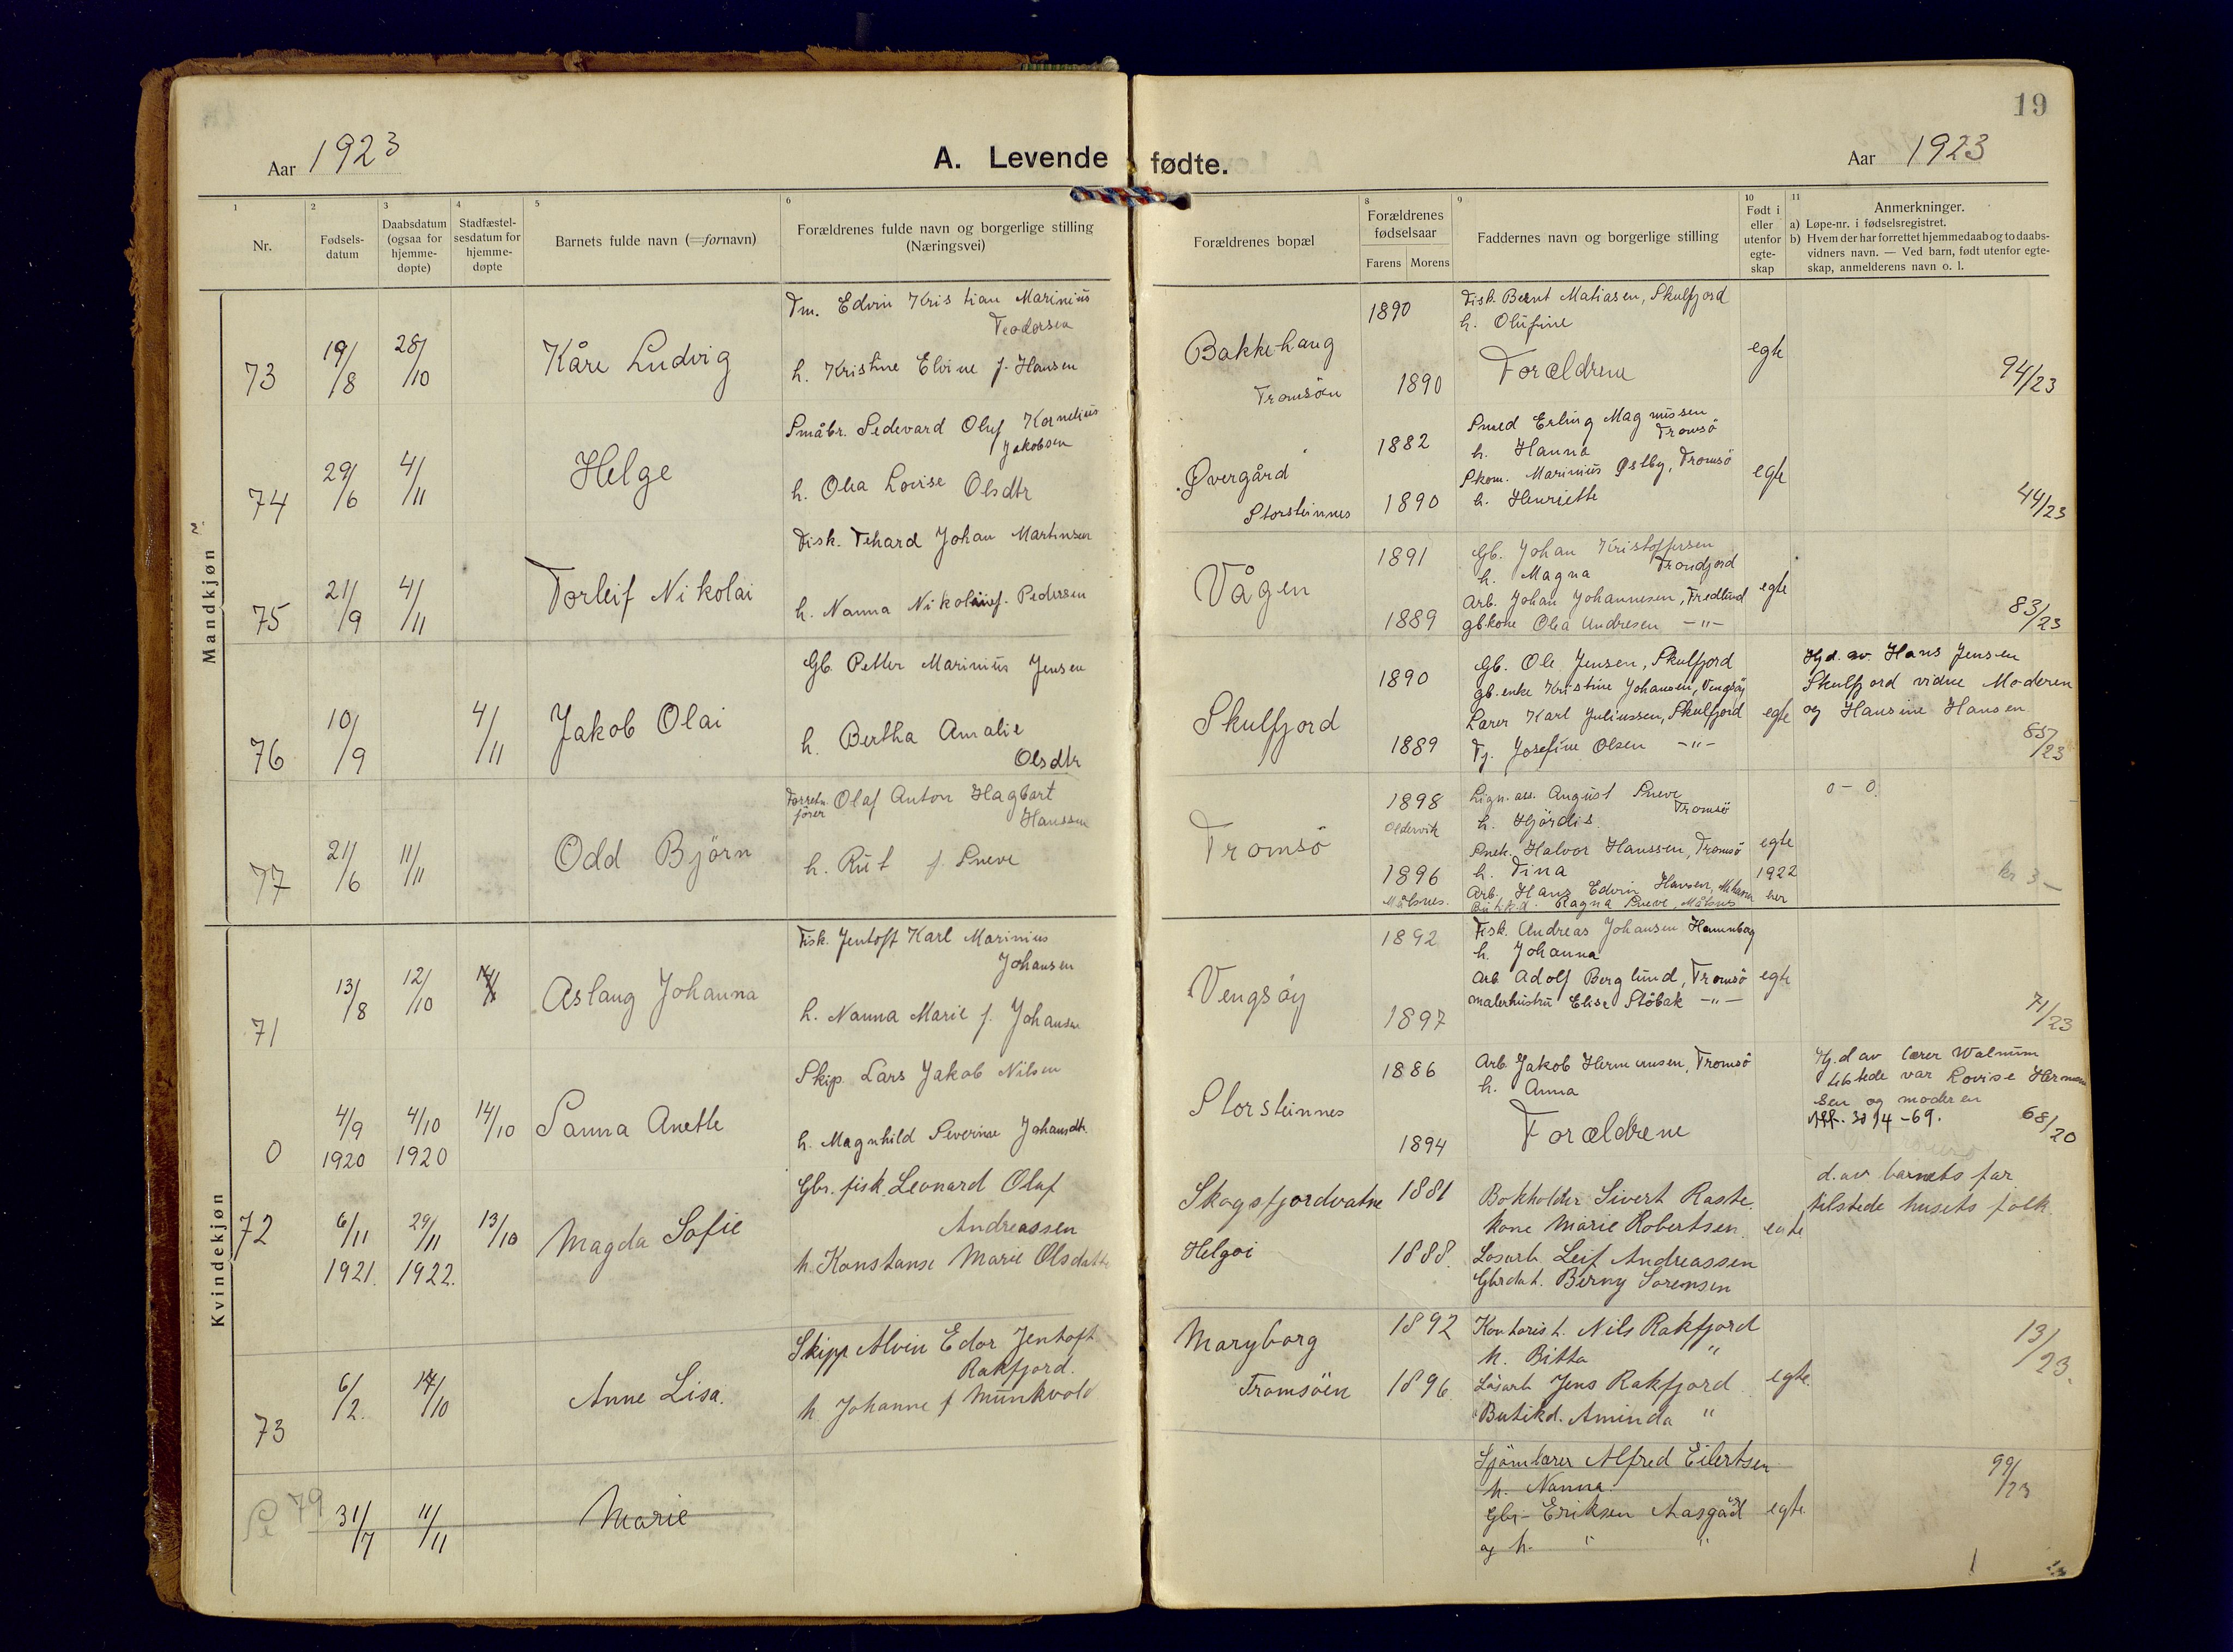 19
Aar 1923
A. Levende fødte.
Aar 1923
1 2 3 4 5 6 8 9 10 11
Nr.
Fødsels-
datum
Daabsdatum
(ogsaa for
hjemme-
døpte)
Stadfæstel-
sesdatum for
hjemme-
døpte
Barnets fulde navn (=fornavn)
Forældrenes fulde navn og borgerlige stilling
(Næringsvei)
Forældrenes bopæl
Forældrenes
fødselsaar
Farens Morens
Faddernes navn og borgerlige stilling
Født i
eller
utenfor
egte-
skap
Anmerkninger.
a) Løpe-nr. i fødselsregistret.
b) Hvem der har forrettet hjemmedaab og to daabs-
vidners navn. — Ved barn, født utenfor egte-
skap, anmelderens navn o. l.
Mandkjøn
73 19/8 28/10 Kåre Ludvig
Tm. Edvin Kristian Marinius
Teodorsen
h. Kristine Elvine f. Hansen
Bakkehaug
Tromsöen
1890
1890
Fisk. Bernt Matiasen, Skulfjord
h. Olufine
Forældrene
egte
94/23
74 29/6 4/11 Helge
Småbr. Sedevard Oluf Kornelius
Jakobsen
h. Olea Lovise Olsdtr
Øvergård
Storsteinnes
1882
1890
Smed Erling Magnussen
Tromsö
h. Hanna
Skom. Marinius Østby, Tromsö
h. Henriette
egte
44/23
75 21/9 4/11 Torleif Nikolai
Fisk. Tehard Johan Martinsen
h. Nanna Nikoline f. Pedersen
Vågen
1891
1889
Gb. Johan Kristoffersen
h. Magna Trondjord
Arb. Johan Johannesen, Fredlund
gb.kone Olea Andresen -"-
egte
83/23
76 10/9 4/11 Jakob Olai
Gb. Petter Marinius Jensen
h. Bertha Amalie
Olsdtr
Skulfjord
1890
1889
Gb. Ole Jensen, Skulfjord
gb.enke Kristine Johansen, Vengsöy
Lærer Karl Juliussen, Skulfjord
Tj. Josefine Olsen -"-
egte
Hjd. av Hans Jensen
Skulfjord vidne Moderen
og Hansine Hansen
85/23
77 21/6 11/11 Odd Björn
Forretn.
fører Olaf Anton Hagbart
Hanssen
h. Rut f. Sneve
Tromsö
1898
Oldervik
1896
Målsnes.
Lign. ass. August Sneve
Tromsö
h. Hjördis
Snek. Halvor Hanssen, Tromsö
h. Tina
Arb. Hans Edvin Hansen,
Butikd. Ragna Sneve, Målsnes
egte
1922
her
0-0.
kr 3 —
Kvindekjøn
71 13/8 12/10 Aslaug Johanna
Fisk. Jentoft Karl Marinius
Johansen
h. Nanna Marie f. Johansen
Vengsöy
1892
1897
Fisk. Andreas Johansen Hamnbag
h. Johanna
Arb Adolf Berglund, Tromsö
malerhustru Elise Stöbak -"-
egte
71/23
0 4/9 1920 4/10 1920 14/10 Sanna Anette
Skip. Lars Jakob Nilsen
h. Magnhild Severine Johansdtr.
Storsteinnes
1886
1894
Arb. Jakob Hermansen, Tromsö
h. Anna
Forældrene
Hj.d av lærer Walnum
tilstede var Lovise Herman
sen og moderen
68/20
72 6/11 1921. 29/11 1922. 13/10 Magda Sofie
Gbr. fisk. Leonard Olaf
Andreassen
h. Konstanse Marie Olsdatter
Skogsfjordvatne
Helgöi
1881
1888.
Bokholder Sivert Raste.
kone Marie Robertsen.
Løsarb. Leif Andreassen
Gbrdat. Berny Sorensen
egte
d. av barnets far
tilstede husets folk.
73 6/2. 14/10 Anne Lisa.
Skipp Alvin Edor Jentoft
Rakfjord.
h. Johanne f Munkvold
Maryborg
Tromsöen
1892
1896.
Kontorist. Nils Rakfjord
h. Bitta "
Lösarb Jens Rakfjord
Butikd. Aminda "
egte.
13/23.
79 31/7 11/11 Marie
Sjömlærer Alfred Eilertsen
h. Nanna.
Gbr- Eriksen Aasgård
og h. " "
egte.
99/23